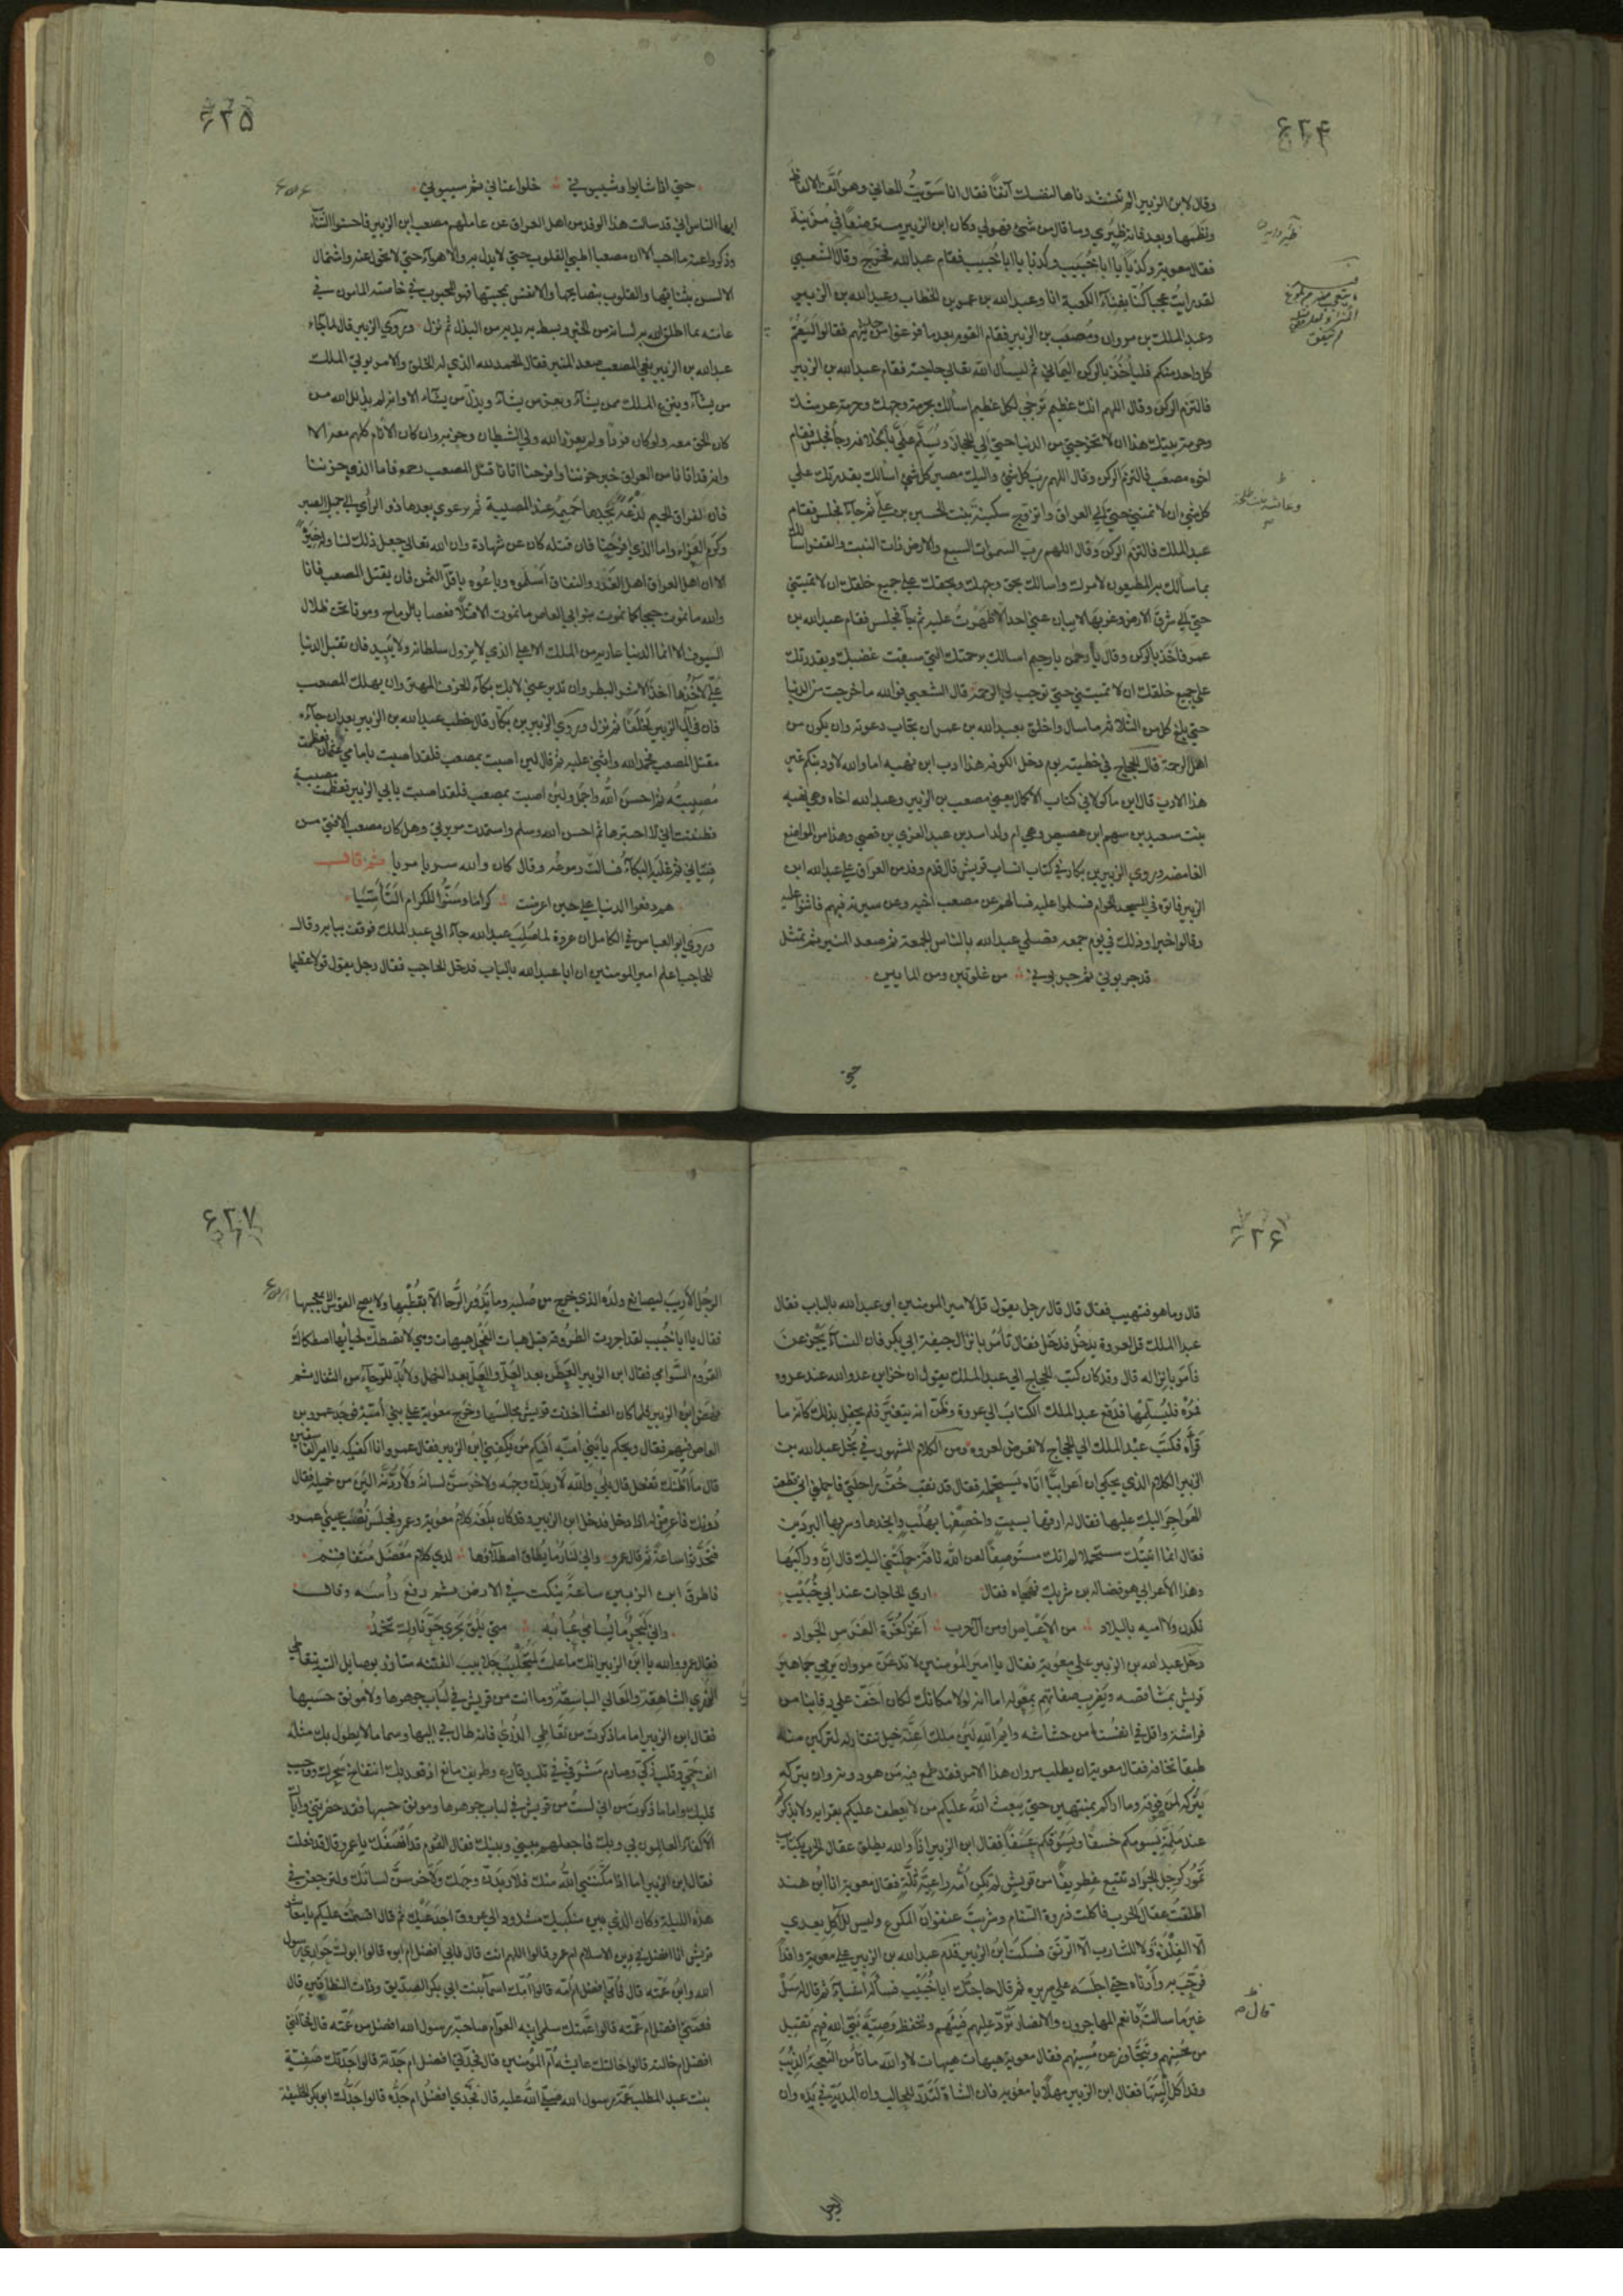 ۶۲۴
وقال لابن الزبير الم تنشدناها لنفسك آنفًا فقال انا سَوّيتُ المعاني وهو الّف الالفاظ
ونظمها وبعد فانه ظِئري وما قال من شئ فهو لي وكان ابن الزبير مسترضعًا في مُزَينة
فقال معوية وكذبًا يا ابا خُبَيب وكذبا يا ابا خُبيب فقام عبدالله فخرج وقال الشعبي
لقد رايتُ عجبا كنّا بفناء الكعبة انا وعبدالله بن عمر بن الخطاب وعبدالله بن الزبير
وعبد الملك بن مروان ومُصعَب بن الزبير فقام القوم بعد ما فرغوا من حديثهم فقالوا ليَقُم
كل واحد منكم فليأخُذ بالركن اليماني ثم ليسأل الله تعالي حاجته فقام عبدالله بن الزبير
فالتزم الركن وقال اللهم انك عظيم تُرجي لكل عظيم اسألك بحرمة وجهك وحرمة عرشك
وحرمة بيتك هذا ان لا تخرجني من الدنيا حتي الي الحجاز ويُسَلَّم عَلَيّ بالخلافه وجآ فجلس فقام
اخوه مصعَب فالتزم الركن وقال اللهم ربّ كل شئ واليك مصير كل شئ اسألك بقدرتك علي
كل شئ ان لا تميتني حتي الي العراق واتزوج سكينة بنت الحسين بن علي ثم جآء فجلس فقام
عبد الملك فالتزم الركن وقال اللهم ربّ السموات السبع والارض ذات النبت والقفر اسالك
بما سألك به المطيعون لامرك واسالك بحق وجهك وبحقك علي جميع خلقك ان لا تميتني
حتي الي شرق الارض وغربها لا ينازعني احد الا ظهرتُ عليه ثم جآ فجلس فقام عبدالله بن
عمر فاخذ بالركن وقال يا رحمن يا رحيم اسالك برحمتك التي سبقت غضبك وبقدرتك
علي جميع خلقك ان لا تميتني حتي توجب لي الرحمة قال الشعبي فوالله ما خرجت من الدنيا
حتي بلغ كل من الثلاثة ما سال واخلق بعبدالله بن عمر ان تجاب دعوته وان يكون من
اهل الرحمة قال الحجاج في خطبته يوم دخل الكوفه هذا ادب ابن نهيه اما والله لاودبنكم غير
هذا الادب قال ابن ماكولا في كتاب الاكمال يعني مصعب بن الزبير وعبدالله اخاه وهي نهيه
بنت سعيد بن سهم ابن هصيص وهي ام ولد اسد بن عبد العزي بن قصي وهذا من المواضع
الغامضه وروي الزبير بن بكار في كتاب انساب قريش قال قدم وفد من العراق علي عبدالله ابن
الزبير فاتوه في المسجد الحرام فسلموا عليه فسألهم عن مصعب اخيه وعن سيرته فيهم فاثنوا عليه
وقالوا خيرا وذلك في يوم جمعه فصلي عبدالله بالناس الجمعة ثم صعد المنبر ثم تمثل
قد جربوني ثم جربوني من غلوتين ومن المايين
وعائشة بنت طلحة
۶۲۵
حتي اذا شابوا وشيبوني خلوا عناني ثم سيبوني
ايها الناس اني قد سالت هذا الوفد من اهل العراق عن عاملهم مصعب ابن الزبير فاحسنوا الثنآء
وذكروا عنه ما احب الا ان مصعبا اطبي القلوب حتي لا يعدل به والاهوآء حتي لا تحول عنه واستمال
الالسن بثنائها والقلوب بنصايحها والانفس بمحبتها فهو المحبوب في خاصته المامون في
عامته بما اطلق الله به لسانه من الخير وبسط به يديه من البذل ثم نزل وروي الزبير قال لما جآء
عبدالله بن الزبير نعي المصعب صعد المنبر فقال الحمد لله الذي له الخلق والامر يوتي الملك
من يشآء وينزع الملك ممن يشآء ويعز من يشآء ويذلّ من يشآء الا وانه لم يذلل الله من
كان الحق معه ولو كان فردا ولم يعزز الله ولي الشطان وحزبه وان كان الانام كلهم معه الا
وانه قد اتانا من العراق خبر حزننا وافرحنا اتانا قتل المصعب رحمه فاما الذي حزننا
فان لفراق الحميم لذعَةً يجدها حَمِيمُه عند المصيبة ثم يرعوي بعدها ذو الرأي الي جميل الصبر
وكرم العزاء واما الذي افرحنا فان قتله كان عن شهادة وان الله تعالي جعل ذلك لنا وله خيرةً
الا ان اهل العراق اهل الغَدر والنفاق اسلموه وباعُوه باقلّ الثمن فان يقتل المصعب فانا
والله ما نموت حبجا كما تموت بنو ابي العاص ما نموت الا قتلا قعصا بالرماح وموتا تحت ظلال
السيوف الا انما الدنيا عارية من الملك الاعلي الذي لا يزول سلطانه ولا يبيد فان تقبل الدنيا
عَلَيّ لا آخُذها اخذ الاشر البطر وان تدبر عني لا ابك بكآء الخرف المهتر وان يهلك المصعب
فان في آل الزبير لخَلَفًا ثم نزل وروي الزبير بن بكّار قال خطب عبدالله بن الزبير بعد ان جآءه
مقتل المصعب فحمد الله واثني عليه ثم قال لئن اصبت بمصعب فلقد اصبت بامامي عثمان فعظمت
مُصيبتُه ثم احسن الله واجمل ولئن اصبت بمصعب فلقد اصبت بابي الزبير فعظمت مصيبته
فظننت اني لا اجتبرها ثم احسن الله وسلم واستمرت مريرتي وهل كان مصعب الا فتي من
فتياني ثم غلبه البكآء فسالت دموعه وقال كان والله سريا مريا ثم قال
هم دفعوا الدنيا علي حين اعرضت كراما وسَنّوا للكرام التأسّيا
وروي ابو العباس في الكامل ان عروة لما صُلِبَ عبدالله جآء الي عبد الملك فوقف ببابه وقال
للحاجب اعلم امير المومنين ان ابا عبدالله بالباب فدخل الحاجب فقال رجل يقول قولا عظيما
۶۲۶
قال وما هو فتهيب فقال قل قال رجل يقول قل لامير المومنين ابو عبدالله بالباب فقال
عبد الملك قل لعروة يدخُل فدخل فقال تأمُر بانزال جيفة ابي بكر فان النسآء يجزعن
فأمَر بانزاله قال وقد كان كتب الحجاج الي عبد الملك يقول ان خزاين عدو الله عند عروه
فمُرهُ فليُسلّمها فدفع عبد الملك الكتاب الي عروة وظنّ انه يتغير فلم يحفل بذلك كانه ما
قرأه فكتب عبد الملك الي الحجاج لا تعرض لعروه ومن الكلام المشهور في بخل عبدالله بن
الزبير الكلام الذي يحكي ان اعرابيًّا اتاه يستحمله فقال قد نقب خُفّ راحلتي فاحملني اني قطعت
الهواجر اليك عليها فقال له ارقعها بسبت واخصفها بهُلب وانجد بها وسر بها البردين
فقال انما اتيتك مستحملا لم اتك مستوصفًا لعن الله ناقة حملتني اليك قال انّ وراكبها
وهذا الاعرابي هو فضاله بن شريك فهجاه فقال اري الحاجات عند ابي خُبَيب
نكدن ولا اميه بالبلاد من الاعياص او من آل حرب اغرّ كغُرّة الفرس الجواد
دخل عبدالله بن الزبير علي معوية فقال يا امير المؤمنين لا تدعن مروان يرمي جماهير
قريش بمشاقصه ويضرب صفاتهم بمعوله اما انه لولا مكانك لكان اخفّ علي رقابنا من
فراشة واقل في انفسنا من خشاشه وايم الله لئن ملك اعنّة خيل تنقاد له لتركبن منه
طبقا تخافه فقال معوية ان يطلب مروان هذا الامر فقد طمع فيه من هو دونه وان يتركه
يتركه لمن فوقه وما اراكم بمنتهين حتي يبعث الله عليكم من لا يعطف عليكم بقرابه ولا يذكركم
عند مُلِمّة يسومكم خسفًا ويسوقكم عسفًا فقال ابن الزبير اذًا والله يطلق عقال الحرب بكتايب
تمور كرجل الجراد تتبع غطريفًا من قريش لم تكن امّه راعية ثلّة فقال معوية انا ابن هند
اطلقتُ عقال الحرب فاكلت ذروة السّنام وشربت عنفوان المكرع وليس للآكل بعدي
الّا الفِلذة ولا للشارب الّا الرنَق فسكت ابن الزبير قدم عبدالله بن الزبير علي معوية وافدًا
فرحّب به وأدناه حتي اجلسه علي سريره ثم قال حاجتك ابا خُبيب فسأله اشياء ثم قال له سل
غير ما سالت قال نعم المهاجرون والانصار تردّ عليهم فيئهم وتحفظ وصيّة نبيّ الله فيهم تقبل
من مُحسنهم وتتجاوز عن مُسيئهم فقال معوية هيهات هيهات لا والله ما تأمن النعجةُ الذئب
وقد أكل أليتها فقال ابن الزبير مهلًا يا معوية فان الشاة لتدرّ للحالب وان المدية في يده وان
قال
الرجل
۶۲۷
الرجُل الأريبَ ليصانع ولدَه الذي خرج من صُلبه وما تدُور الرُّحا الّا بقُطبها ولا يصلح القوس الا بعَجسها
فقال يا ابا خُبيب لقد اجررت الطروقة قبل هباب الفحل هيهات وهي لا تصطكّ لحيائها اصطكاك
القروم السّوامي فقال ابن الزبير العطن بعد العَلّ والعَلّ بعد النهل ولا بدّ للرحآء من الثفال ثم
نهض ابن الزبير فلما كان العشا اخذت قريش مجالسها وخرج معوية علي بني اُميّة فوجد عمرو بن
العاص فيهم فقال ويحكم يا بني اُميّه افيكم من يكفيني ابن الزبير فقال عمرو انا اكفيكه يا امير المؤمنين
قال ما اظنّك تفعل قال بلي والله لأربدنّ وجهه ولاخرسنّ لسانه ولأردّنّه الين من خميله فقال
دُونك فاعرض له اذا دخل فدخل ابن الزبير وقد كان بلغه كلامُ معوية وعمرو فجلس نُصب عيني عمرو
فتحدّثوا ساعة ثم قال عمرو واني لنارٌ ما يُطاق اصطلاؤها لدي كلام مُعضل متفاقم
فاطرق ابن الزبير ساعةً ينكت في الارض ثم رفع رأسه وقال
واني لَبَحرٌ ما يُسامي عُبابُه متي يَلقَ بَحري حَرّ نارك تخمدُ
فقال عمرو والله يا ابن الزبير انك ما علمت لمتجلبب جلابيب الفتنه متازر بوصايل التيه تتعاطي
الذري الشاهقة والمعالي الباسقة وما انت من قريش في لباب جوهرها ولا مونق حسبها
فقال ابن الزبير اما ما ذكرت من تعاطي الذُّري فانه طال بي اليها وسما ما لا يطول بك مثله
انف حميّ وقلب ذكيّ وصارم مشرفيّ في تليد فارع وطريف مانع اذ قعد بك انتفاخ سحرك ووجيب
قلبك واما ما ذكرت من اني لستُ من قريش في لباب جوهرها ومونق حسبها فقد حضرتني وايّاك
الأكفاء العالمون بي وبك فاجعلهم بيني وبينك فقال القوم قد انصفك يا عمرو قال قد فعلت
فقال ابن الزبير اما اذا مكّنني الله منك فلأربدنّ وجهك ولأخرسنّ لسانك ولترجعن في
هذه الليلة وكان الذي بين منكبيك مشدود الي عروق اخدعيك ثم قال اقسمت عليكم يا معاشر
قريش انا افضل في دين الاسلام ام عمرو قالوا اللهم انت قال فابي افضل ام ابوه قالوا ابوك حَواري رسول
الله وابن عمّته قال فأمّي افضل ام امّه قالوا امّك اسمآ بنت ابي بكر الصدّيق وذات النطاقين قال
فعمّتي افضل ام عمّته قالوا عمّتك سلمي ابنه العوّام صاحبة رسول الله افضل من عمّته قال فخالتي
افضل ام خالته قالوا خالتك عايشه اُم المؤمنين قال فجدّتي افضل ام جدّته قالوا جدّتك صَفيّة
بنت عبد المطلب عمّة رسول الله صلي الله عليه قال فجَدّي افضل ام جَدّه قالوا جَدّك ابو بكر الخليفة